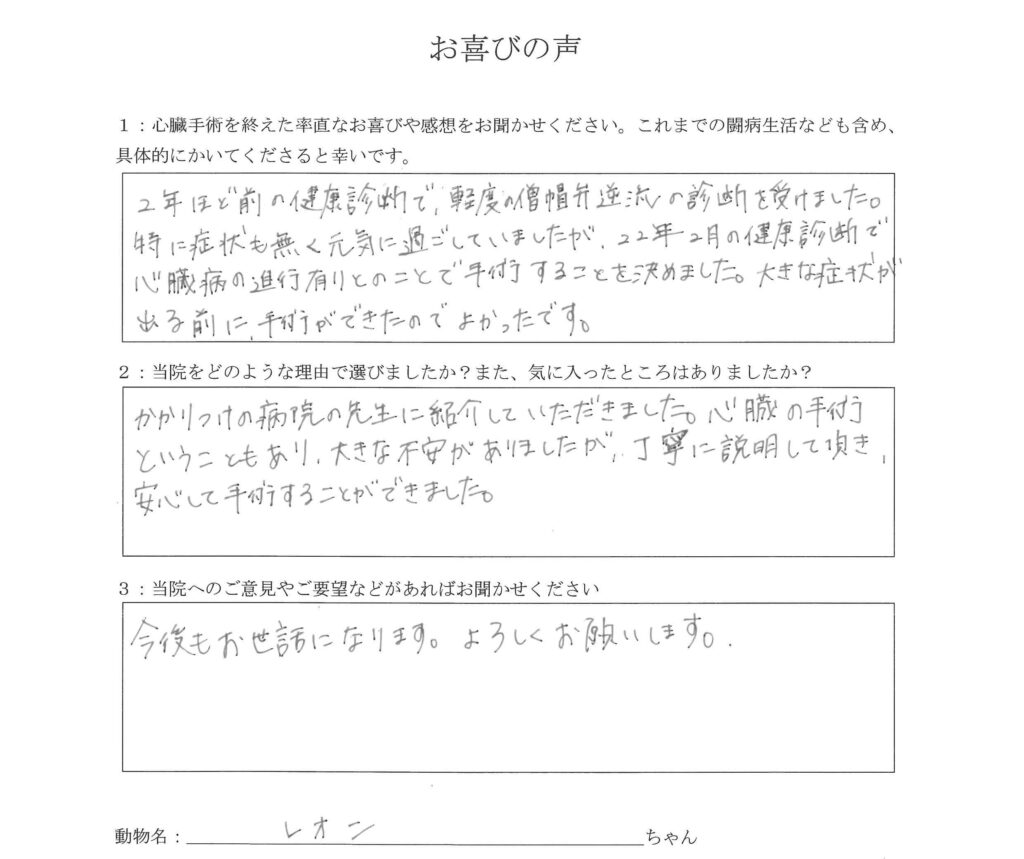 お喜びの声
１：心臓手術を終えた率直なお喜びや感想をお聞かせください。これまでの闘病生活なども含め、
具体的にかいてくださると幸いです。
２年ほど前の健康診断で、軽度の僧帽弁逆流の診断を受けました。
特に症状も無く元気に過ごしていましたが、２２年２月の健康診断で
心臓病の進行有りとのことで手術することを決めました。大きな症状が
出る前に、手術ができたのでよかったです。
２：当院をどのような理由で選びましたか？また、気に入ったところはありましたか？
かかりつけの病院の先生に紹介していただきました。心臓の手術
ということもあり、大きな不安がありましたが、丁寧に説明して頂き、
安心して手術することができました。
３：当院へのご意見やご要望などがあればお聞かせください
今後もお世話になります。よろしくお願いします。
動物名：レオンちゃん